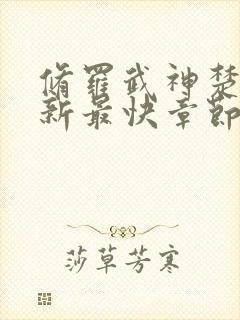 脩羅武神楚
新最快章節
莎草芳寒